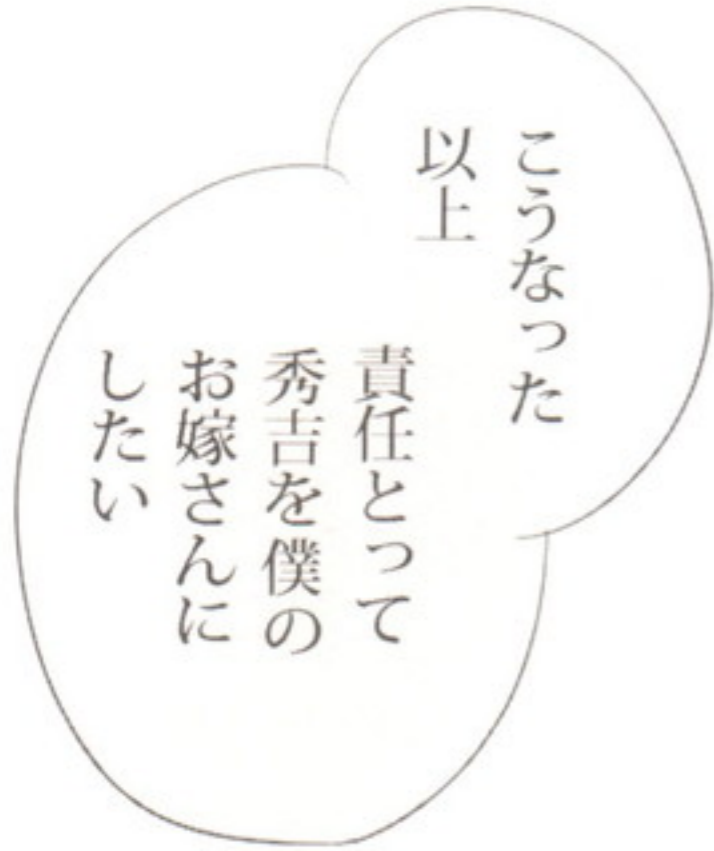 こうなった
以上
責任とって
秀吉を僕の
お嫁さんに
したい